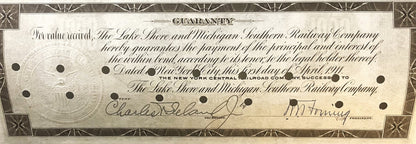 GUARANTY
For value received, The Lake Shore and Michigan Southern Railway Company
hereby guarantees the payment of the principal and interest of
the within bond, according to its tenor, to the legal holder thereof.
Dated at New York City, this first day of April, 1911.
THE NEW YORK CENTRAL RAILROAD COMPANY, SUCCESSOR TO
The Lake Shore and Michigan Southern Railway Company,